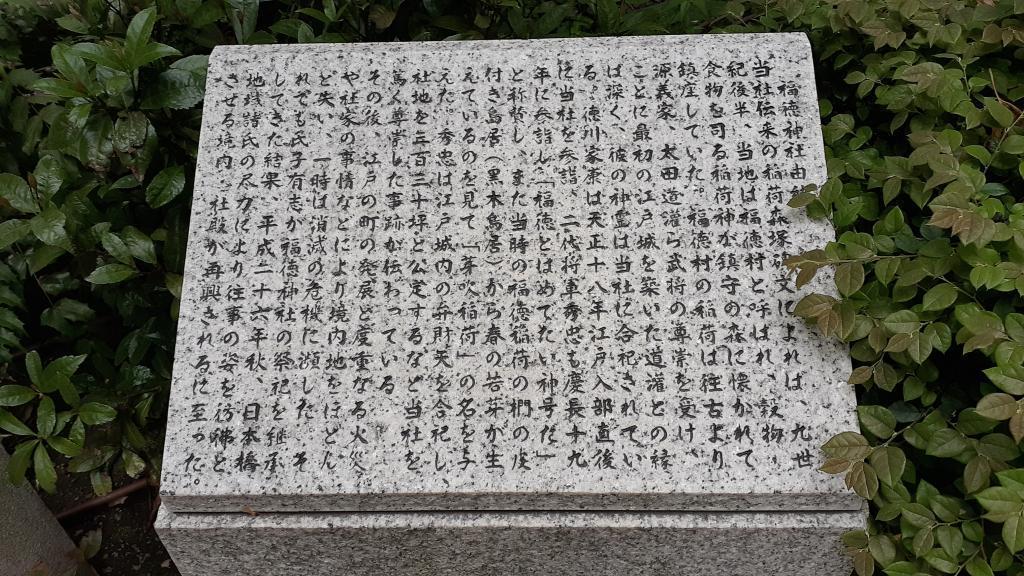 福徳神社由
当社伝来の稲荷森塚碑文によれば、九世
紀後半、当地は福徳村と呼ばれ、穀物・
食物を司る稲荷神が鎮守の森に懐かれて
鎮座していた。福徳村の稲荷は往古より
源義家、太田道灌ら武将の尊崇を受け、
ことに最初の江戸城を築いた道灌との縁
は深く、彼の神霊は当社に合祀されてい
る。徳川家康は天正十八年江戸入部直後
に当社を参詣、二代将軍秀忠も慶長十九
年に参詣し「福徳とはめでたい神号だ」
と称賛し、また当時の福徳稲荷の椚の皮
付き鳥居(黒木鳥居)から春の若芽が生
えているのを見て「芽吹稲荷」の名を与
えた。秀忠は江戸城内の弁財天を合祀し、
社地を三百三十坪と公定するなど当社を
篤く尊崇した事跡が伝わっている。
その後、江戸の町の発展と度重なる火災
や社家の事情などにより境内地をほとん
ど失い、一時は消滅の危機に瀕した。そ
れでも氏子有志が福徳神社の祭祀を継承
してきた結果、平成二十六年秋、日本橋
地域諸氏の尽力により往事の姿を彷彿と
させる境内、社殿が再興されるに至った。